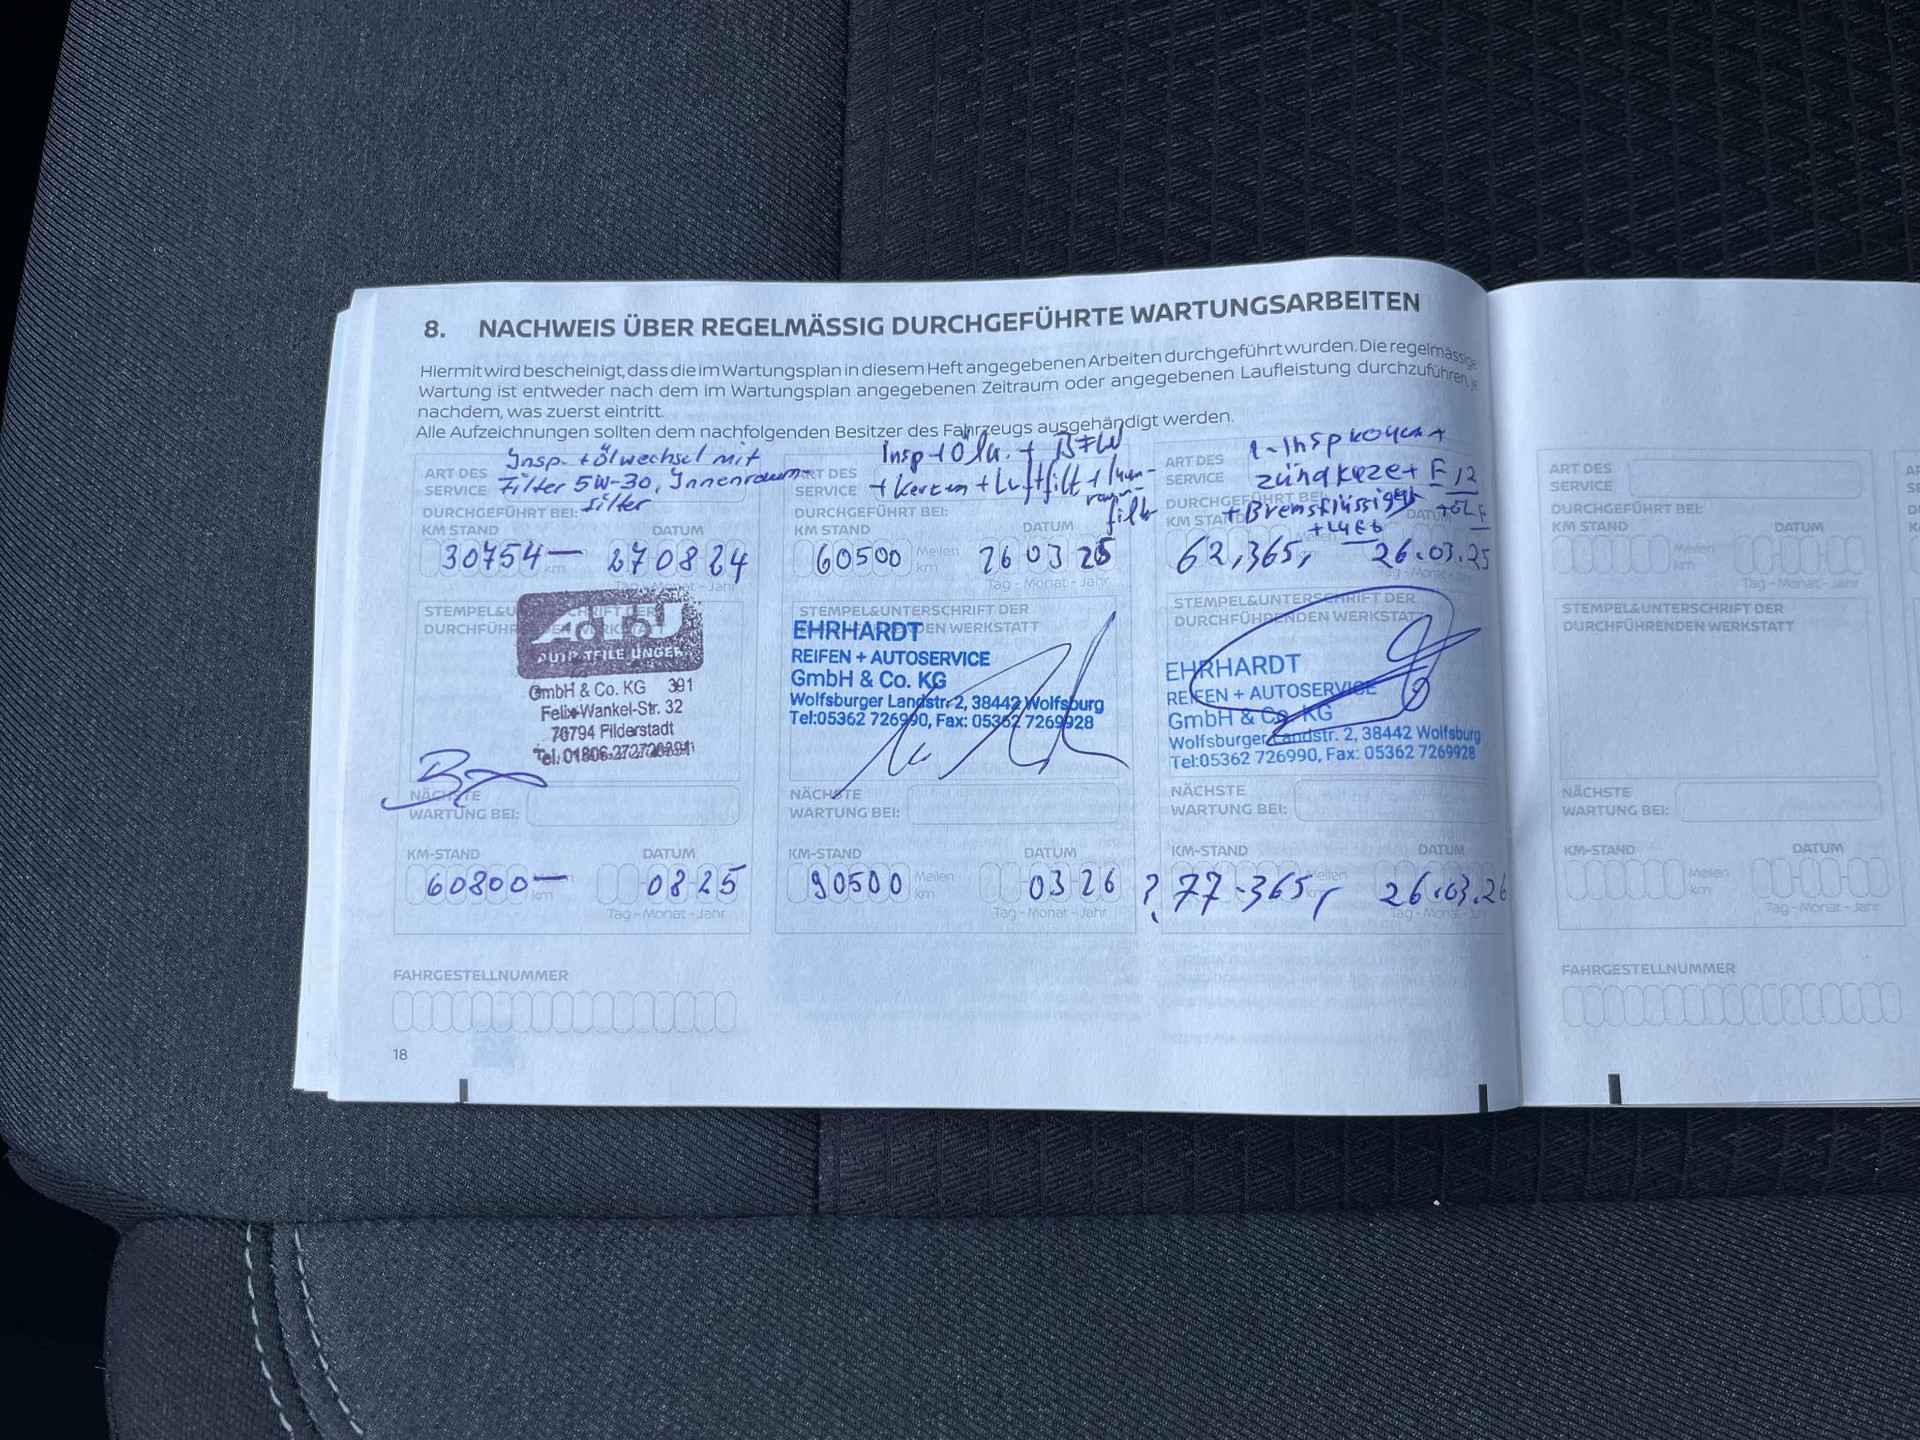 8. NACHWEIS ÜBER REGELMÄSSIG DURCHGEFÜHRTE WARTUNGSARBEITEN
Hiermit wird bescheinigt, dass die im Wartungsplan in diesem Heft angegebenen Arbeiten durchgeführt wurden. Die regelmässige
Wartung ist entweder nach dem im Wartungsplan angegebenen Zeitraum oder angegebenen Laufleistung durchzuführen, je
nachdem, was zuerst eintritt.
Alle Aufzeichnungen sollten dem nachfolgenden Besitzer des Fahrzeugs ausgehändigt werden.
Insp. + Ölwechsel mit
ART DES
SERVICE
Filter 5W-30, Innenraum-
filter
DURCHGEFÜHRT BEI:
KM STAND DATUM
30754 km 27 08 24
Tag - Monat - Jahr
STEMPEL&UNTERSCHRIFT DER
AUTOTEILE UNGER
GmbH & Co. KG 391
Felix-Wankel-Str. 32
70794 Filderstadt
NÄCHSTE
WARTUNG BEI:
KM-STAND DATUM
60800 km 08 25
Tag - Monat - Jahr
FAHRGESTELLNUMMER
18
ART DES
SERVICE
+ Kerzen + Luftfilt + Innen-
raum-
filt
DURCHGEFÜHRT BEI:
KM STAND DATUM
60500 Meilen km 26 03 25
Tag - Monat - Jahr
STEMPEL&UNTERSCHRIFT DER
DURCHFÜHRENDEN WERKSTATT
EHRHARDT
REIFEN + AUTOSERVICE
GmbH & Co. KG
Wolfsburger Landstr. 2, 38442 Wolfsburg
Tel:05362 726990, Fax: 05362 7269928
NÄCHSTE
WARTUNG BEI:
KM-STAND DATUM
90500 Meilen km 03 26
Tag - Monat - Jahr
ART DES
SERVICE
+ Bremsflüssigk
DURCHGEFÜHRT BEI:
KM STAND DATUM
62,365, 26.03.25
STEMPEL&UNTERSCHRIFT DER
DURCHFÜHRENDEN WERKSTATT
EHRHARDT
REIFEN + AUTOSERVICE
GmbH & Co. KG
Wolfsburger Landstr. 2, 38442 Wolfsburg
Tel:05362 726990, Fax: 05362 7269928
NÄCHSTE
WARTUNG BEI:
KM-STAND DATUM
77.365, 26.03.26
Tag - Monat - Jahr
ART DES
SERVICE
DURCHGEFÜHRT BEI:
KM STAND DATUM
Meilen
km
Tag - Monat - Jahr
STEMPEL&UNTERSCHRIFT DER
DURCHFÜHRENDEN WERKSTATT
NÄCHSTE
WARTUNG BEI:
KM-STAND DATUM
Meilen
km
Tag - Monat - Jahr
FAHRGESTELLNUMMER